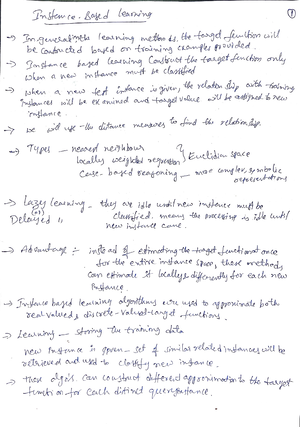 Instance-Based Learning
①
→ In general, the learning methods, the target function will
be constructed based on training examples provided.
→ Instance based learning construct the target function only
when a new instance must be classified
→ when a new test instance is given, the relationship with training
instances will be examined and target value will be assigned to new
instance.
→ we will use the distance measures to find the relationship.
→ Types — nearest neighbour
locally weighted regression } Euclidian space
Case-based reasoning — more complex, symbolic
representations
→ Lazy learning — they are idle until new instance must be
(or) classified. means the processing is idle until
Delayed " new instance came.
→ Advantage :- instead of estimating the target function at once
for the entire instance space, these methods
can estimate it locally & differently for each new
instance.
→ Instance based learning algorithms are used to approximate both
real valued & discrete-valued target functions.
→ Learning — storing the training data
new instance is given — set of similar related instances will be
retrieved and used to classify new instance.
→ These algo's can construct different approximation to the target
function for each distinct query instance.